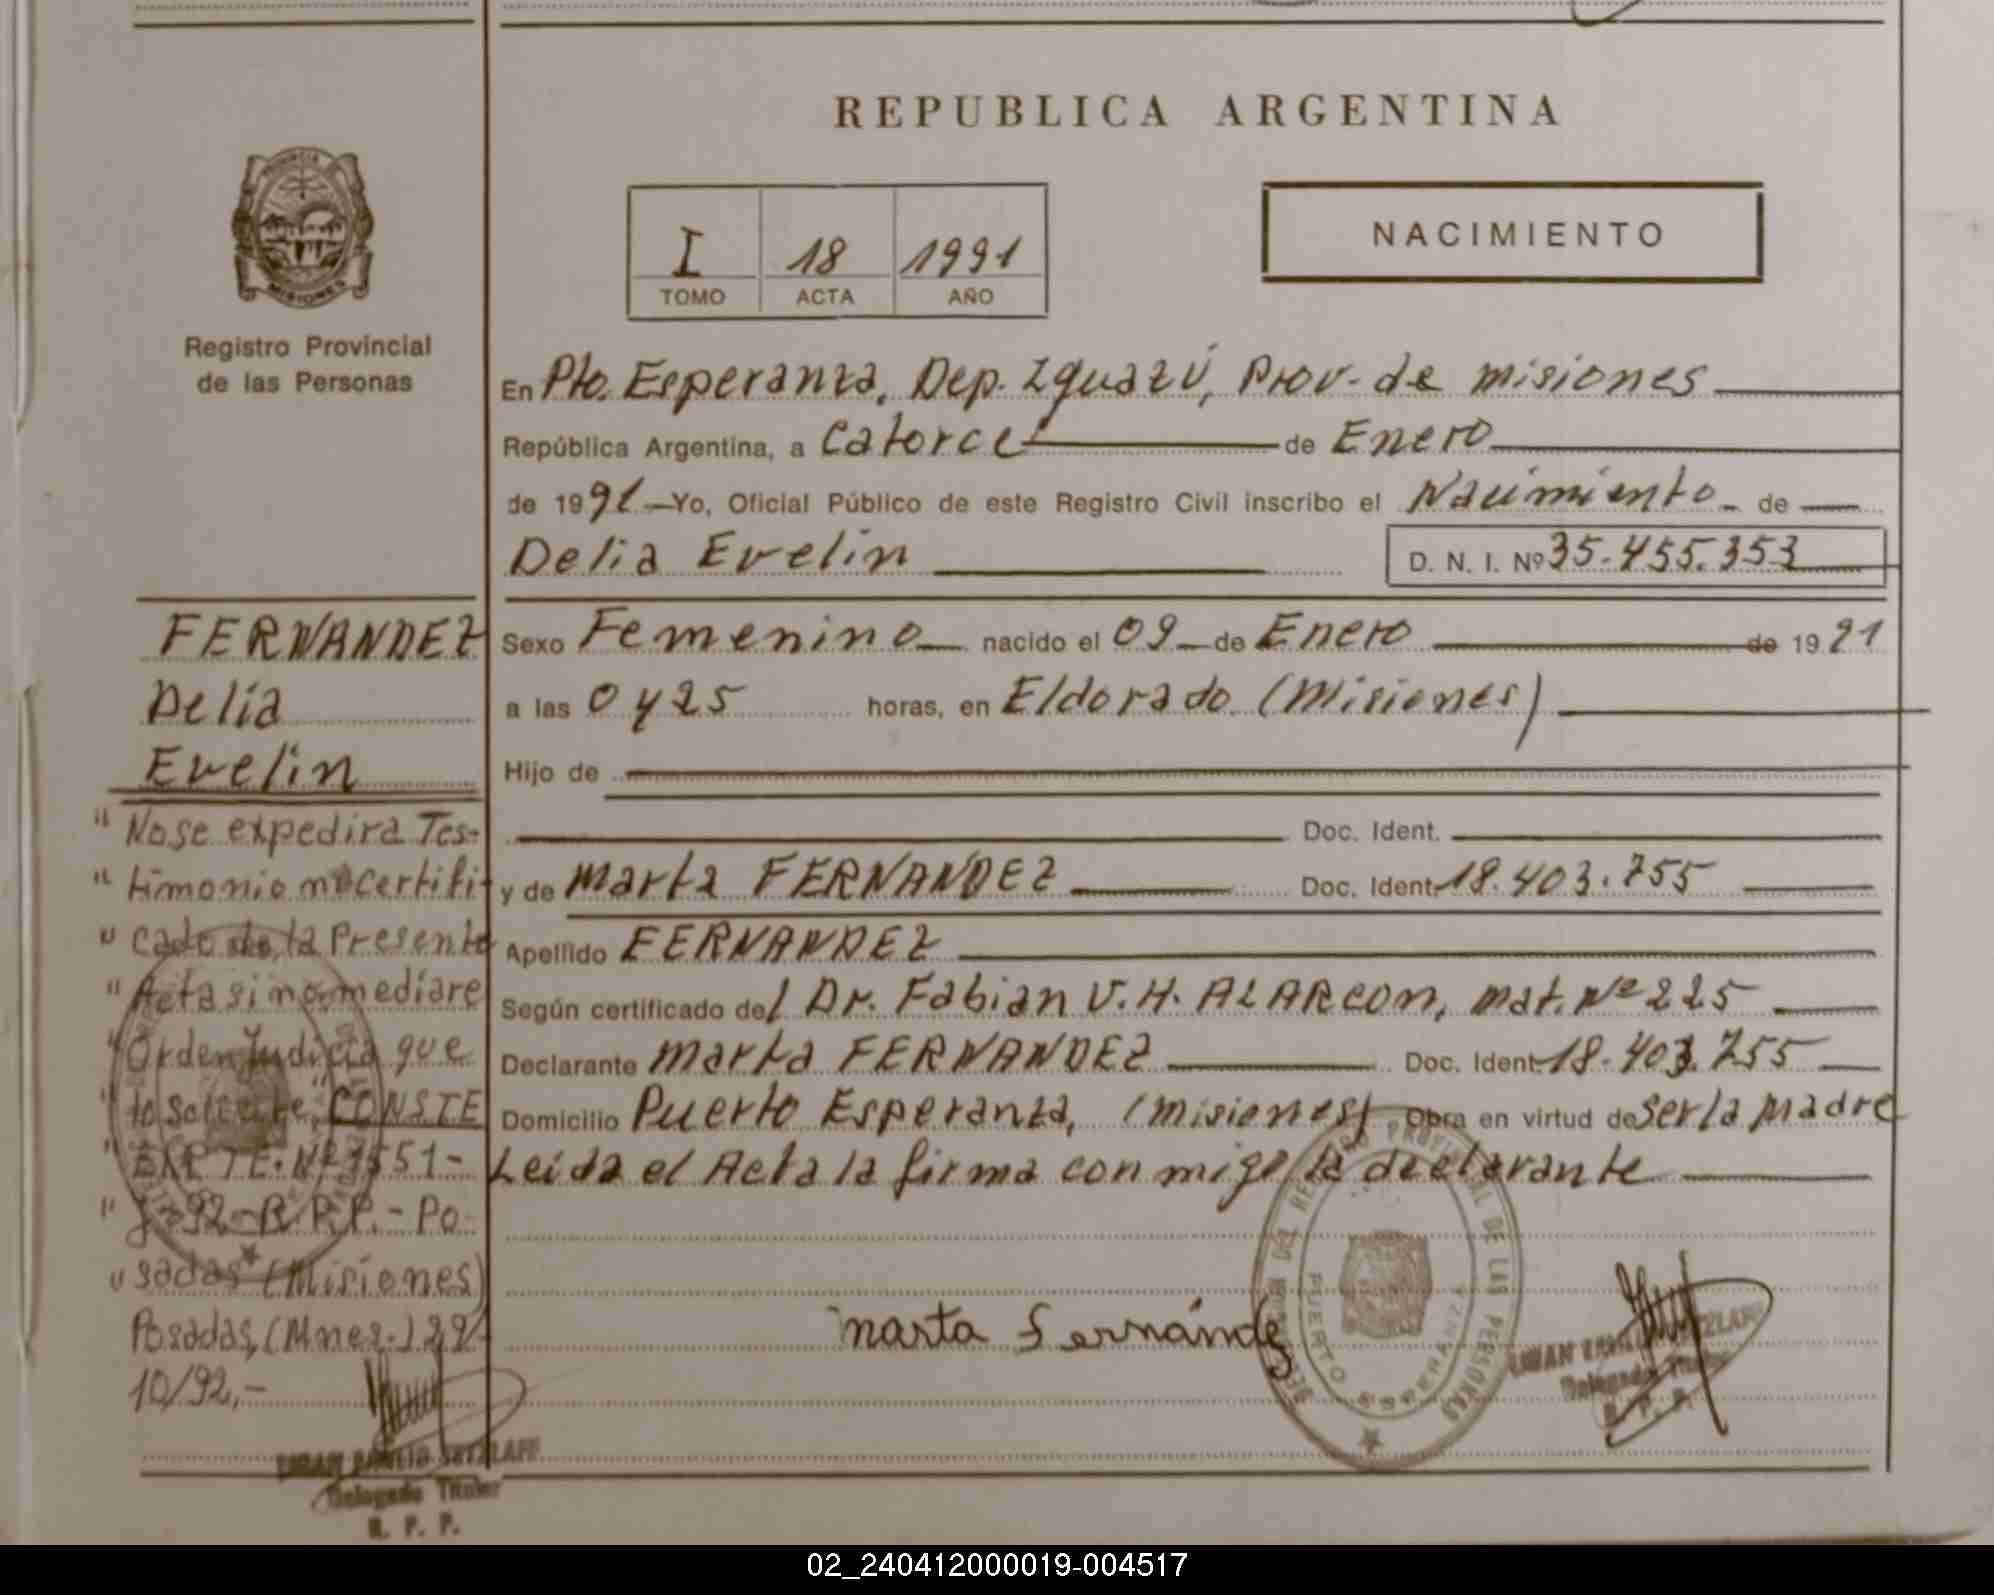 REPUBLICA ARGENTINA
PROVINCIA
MISIONES
Registro Provincial
de las Personas
I 18 1991
TOMO ACTA AÑO
NACIMIENTO
En Pto. Esperanza, Dep. Iguazú, Prov. de Misiones
República Argentina, a Catorce de Enero
de 1991 Yo, Oficial Público de este Registro Civil inscribo el Nacimiento de
Delia Evelin D. N. I. Nº 35.455.353
FERNANDEZ
Delia
Evelin
"No se expedira Tes-
"timonio ni certifi-
"cado de la Presente
"Acta si no mediare
"Orden Judicial que
"lo solicite," CONSTE
"EXPTE. Nº 1551-
92-R.P.P.- Po-
"sadas (Misiones)
Posadas, (Mnes.) 29-
10/92.-
Delegado Titular
R. P. P.
Sexo Femenino nacido el 09 de Enero de 1991
a las 0425 horas, en Eldorado (Misiones)
Hijo de
Doc. Ident.
y de Marta FERNANDEZ Doc. Ident. 18.403.755
Apellido FERNANDEZ
Según certificado del Dr. Fabian V.H. ALARCON, Mat. Nº 225
Declarante Marta FERNANDEZ Doc. Ident. 18.403.755
Domicilio Puerto Esperanza, (Misiones) Obra en virtud de Ser la Madre
Leída el Acta la firma con migo la declarante
Marta Fernández
DEL REGISTRO PROVINCIAL DE LAS PERSONAS
PUERTO ESPERANZA
Delegado Titular
R. P. P.
02_240412000019-004517